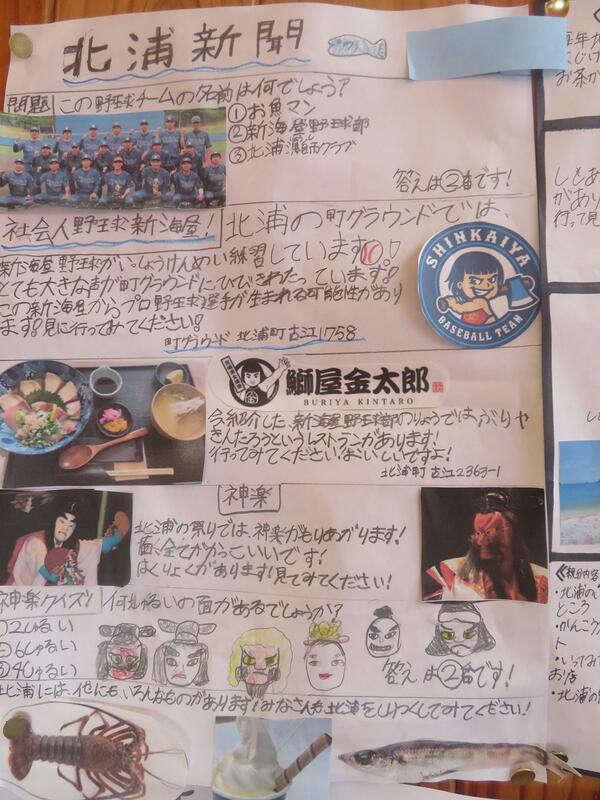 北浦新聞
問題 この野球チームの名前は何でしょう?
①お魚マン
②新海屋野球部
③北浦漁師クラブ
答えは②番です!
社会人野球新海屋!
北浦の町グラウンドでは、
新海屋野球がいっしょうけんめい練習しています!
とても大きな声が町グラウンドにひびきわたっています!
この新海屋からプロ野球選手が生まれる可能性があり
ます!見に行ってみてください!
町グラウンド 北浦町古江1758
SHINKAIYA
BASEBALL TEAM
鰤屋金太郎
BURIYA KINTARO
今紹介した、新海屋野球部のりょうではぶりや
きんたろうというレストランがあります!
行ってみてください!おいしいですよ!
北浦町古江2363-1
神楽
北浦の祭りでは、神楽がもりあがります!
面、全てがかっこいいです!
はくりょくがあります!見てみてください!
神楽クイズ 何しゅるいの面があるでしょうか?
①2しゅるい
②6しゅるい
③4しゅるい
答えは②番です!
北浦には、他にもいろんなものがあります!みなさんも北浦をしりつくしてみてください!
お茶が
行って見
・北浦の
ところ
ト
お店
・北浦の